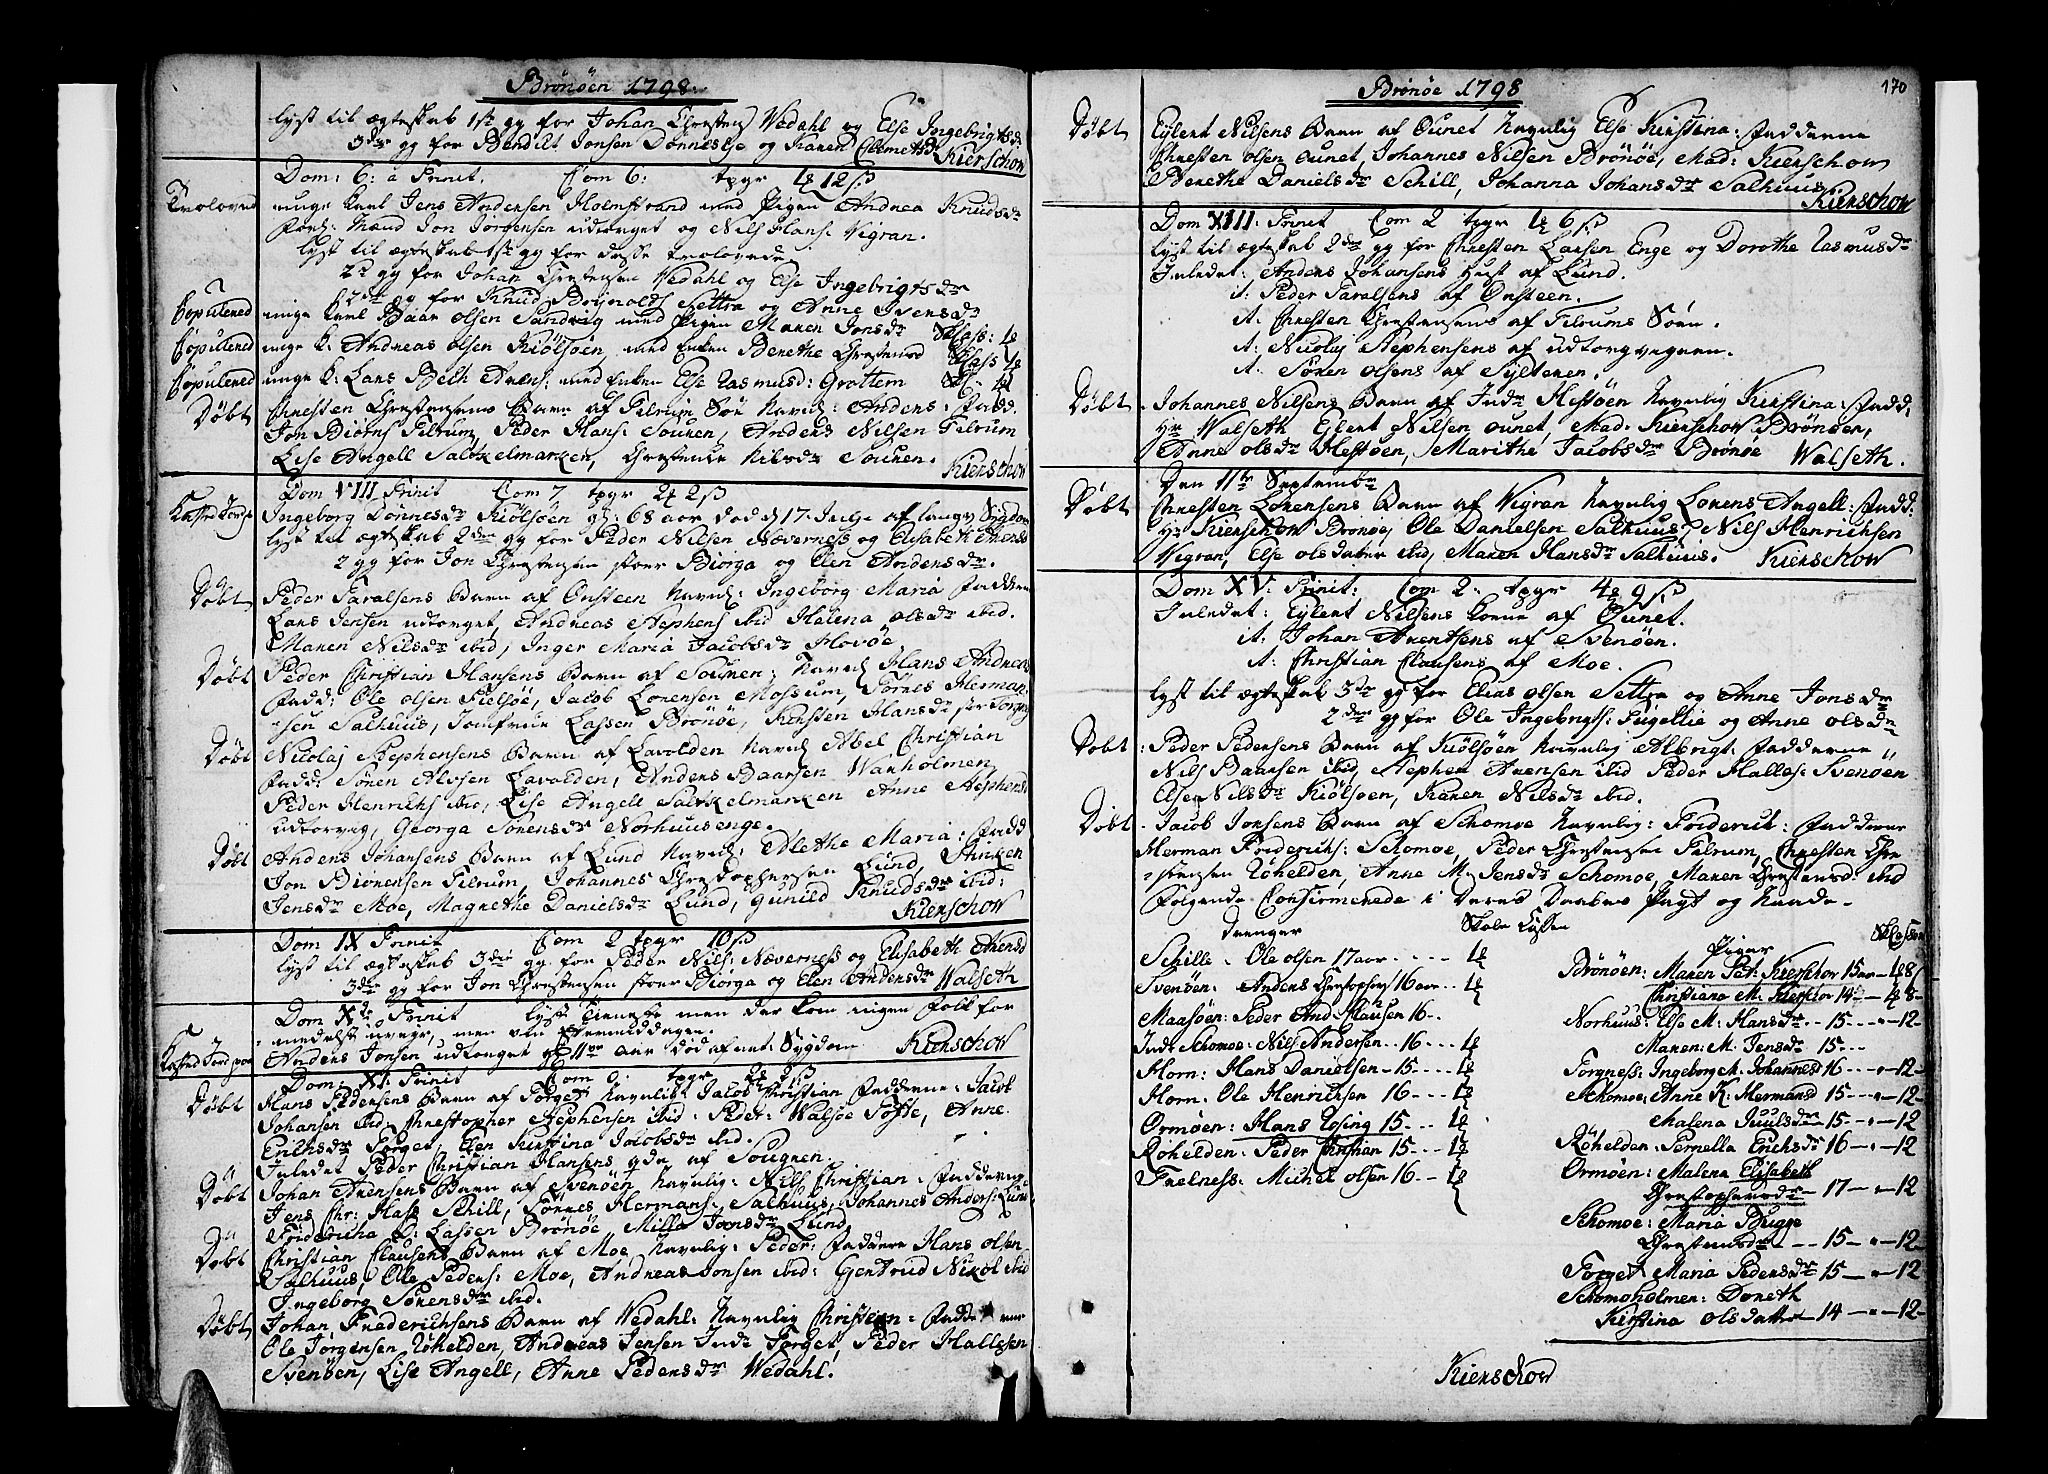 Brönöen 1798.
lyst til ægteskab 1ste gg for Johan Chrestens Wedahl og Else Ingebrigtsdr
3die gg for Bendilt Jonsen Dønnesse og Karen Clemetsdr Kierschow
Dom: 6: à Trinit. Com 6: tpgr 1 12 ß
Troloved unge karl Jens Andersen Holmstrand med Pigen Andrea Knudsdr
Forl: Mænd Jon Jørgensen udtorget og Nils Hans: Vigran.
lyst til ægteskab 1ste gg for disse trolovede
2de gg for Johan Chrestensen Wedahl og Else Ingebrigtsdr
2de gg for Knud Brynolds Settra og Anne Iversdr
Copulered unge karl Baar olsen Sandvig med Pigen Maren Jonsdr
Copulered unge k: Andreas olsen Kiölsöen, med Enken Berethe Chrestensd
Copulered unge k: Lars Beth Arens: med Enken Else Rasmusd: Grottem
Döbt Chresten Chrestensens Barn af Tilrum Søe Navnl: Anders: Fadd.
Jon Biørns Tilrum, Peder Hans: Souren, Anders Nilsen Tilrum
Lise Angell Saltkelmarken, Chrestense Nilsdr Souren. Kierschow
Dom VIII Trinit Com 7 tpgr 2 2 ß
Kasted Jord Ingeborg Tönnesdr Kiölsöen gl: 68 aar død d 17 Julje af langv: Sygdom
lyst til ægteskab 2den gg for Peder Nilsen Næverness og Elisabeth Arensd
2 gg for Jon Chrestensen stoer Biørga og Elen Andersdr.
Döbt Peder Taralsens Barn af Onsteen Navnl: Ingeborg Maria Faddere
Lars Jensen udtorget, Andreas Stephens ibid Halena olsdr ibid.
Maren Nilsdr ibid, Inger Maria Jacobsdr Hovöe
Döbt Peder Christian Hansens Barn af Souren: Navnl Hans Andreas
Fadd: Ole olsen Fielsöe, Jacob Lorensen Mossum, Tönnes Herman-
-sen Salhuus, Jomfrue Lassen Brönöe, Kirsten Hansdr
Döbt Nicolaj Stephensens Barn af Lavolden Navnl Abel Christian
Fadd: Sören Alvsen Lavolden, Anders Baarsen Warholmen
Peder Henrichs ibid, Lise Angell Saltkelmarken Anne Stephensd
udtorvig, Georga Sörensdr Norhuusenge.
Döbt Anders Johansens Barn af Lund Navnl: Alethe Maria: Fadd
Jon Biörensen Tilrum, Johannes Chrestophersen Lund, Anken
Jensdr Moe, Magrethe Danielsdr Lund, Gunild Knudsdr ibid:
Kierschow
Dom IX Trinit Com 2 tpgr 10 ß
lyst til ægteskab 3die gg. for Peder Nils: Næverness og Elisabeth Arensd
3die gg for Jon Chrestensen stoer Biørga og Elen Andersdr Walseth
Dom Xde Trinit lyst tieneste men der kom ingen Folk for
medelst uveyr, men om Formiddagen.
Kasted Jord paa Anders Jonsen udtorget gl 11 aar død af nat: Sygdom Kierschow
Dom: XI: Trinit Com 0: tpgr 2 2 ß
Döbt Hans Pedersens Barn af Torget Navnlig Jacob Christian Fadderne: Jacob
Johansen ibid, Chrestopher Stephensen ibid: Peder: Walsöe Tofte, Anne
Erichsdr Torget: Elen Kirstina Jacobsdr ibid.
Inledet Peder Christian Hansens qde af Sougnen.
Döbt Johan Arensens Barn af Svenöen Navnlig: Nils Christian: Fadderne
Jens Chr: Hass Schill, Tönnes Hermans: Salhuus, Johannes Anders: Lund
Fridericha D: Lassen Brönöe, Milla Jonsdr Lund
Döbt Christian Clausens Barn af Moe Navnlig: Peder: Faddere Hans olsen
Salhuus, Ole Peders: Moe, Andreas Jonsen ibid: Gertrud Nikol ibid
Ingeborg Sörensdr ibid.
Döbt Johan Frederichsens Barn af Wedahl: Navnlig Christian: Fadderne
Ole Jörgensen Röhelden, Andreas Jensen Indr Torget, Peder Hallesen
Svenöen, Lise Angell, Anne Pedersdr Wedahl.
Brönöe 1798 170
Döbt Eylert Nilsens Barn af Ounet Navnlig Else Kirstina: Fadderne
Chresten olsen ounet, Johannes Nilsen Brönöe, Mad: Kierschow
Berethe Danielsdr Schill, Johanna Johansdr Salhuus.
Kierschow
Dom XIII: Trinit Com 2 tpgr 1 6 ß
lyst til ægteskab 2de gg for Chresten Larsen Enge og Dorothe Rasmusdr
Inledet: Anders Johansens Hust af Lund.
it: Peder Taralsens af Onsteen.
it: Chresten Chrestensens af Tilrums Søen.
it: Nicolaj Stephensens af udtorgvegnen.
it: Sören olsens af Sylteren.
Döbt Johannes Nilsens Barn af Indr Hestöen Navnlig Kirstina: Fadd:
Hr Walseth Eylert Nilsen ounet, Mad. Kierschow Brönöen,
Anne olsdr Hestöen, Marithe Jacobsdr Brönöe Walseth.
Den 11te Septembr
Döbt Chresten Lorensens Barn af Vigran Navnlig Lorens Angell: Fadd:
Hr Kierschow Brönöe, Ole Danielsen Salhuus, Nils Henrichsen
Vigran, Else olsdater ibid, Maren Hansdr Salhuus. Kierschow
Dom XV: Trinit: Com 2: tpgr 4 9 ß
Inledet: Eylert Nilsens Kone af Ounet.
it: Johan Arentsens af Svenöen.
it: Christian Clausens af Moe.
lyst til ægteskab 3die gg for Elias olsen Settra og Anne Jonsdr
2den gg for Ole Ingebrigts: Tigellie og Anne olsdr
Döbt Peder Pedersens Barn af Kiölsöen Navnlig Albrigt: Fadderne
Nils Baarsen ibid, Stephen Arensen ibid Peder Halles: Svenöen
Else Nilsdr Kiölsöen, Karen Nilsdr ibid.
Döbt Jacob Jonsens Barn af Schomoe Navnlig: Friderich: Fadderne
Herman Friderichs: Schomoe, Peder Chrestensen Tilrum, Chresten Chre-
-stensen Röhelden, Anne M. Jensdr Schomoe, Maren Chrestensd: ibid
Følgende Confirmerede i Deres Daabes Pagt og Naade.
Drenger Skole Cassen
Schille: Ole olsen 17 aar ---- 1
Svenöen: Anders Chrestophers 16 aar .. 1
Maasöen: Peder And Klausen 16 -
Indr Schomoe: Nils Andersen .. 16 ... 1
Horn: Hans Danielsen - 15 .... 1
Horn: Ole Henrichsen 16 ---- 1
Ormöen: Hans Rosing 15 .... 1
Röhelden: Peder Christian 15 -- 1
Trælness: Michel olsen 16 -- 1
Piger
Brönöen: Maren Pet: Kierschow 15 aar - 1 8
Christiana M. Kierschow 14 - 1 8
Norhuus: Else M: Hansdr - 15 --- 12
Maren: M. Jensdr 15 ---
Torgness: Ingeborg M. Johannes 16 -- 12
Schomoe: Anne K: Hermansd 15 -- 12
Malena Juulsdr 15 -- 12
Röhelden: Pernella Erichsdr 16 -- 12
Ormöen: Malena Elisabeth
Chrestophersdr - 17 -- 12
Schomoe: Maria Brigge
Chrestensdr -- 15 -- 12
Torget: Maria Pedersdr 15 -- 12
Schomoholmen: Doreth
Kirstina olsdatter - 14 -- 12
Kierschow